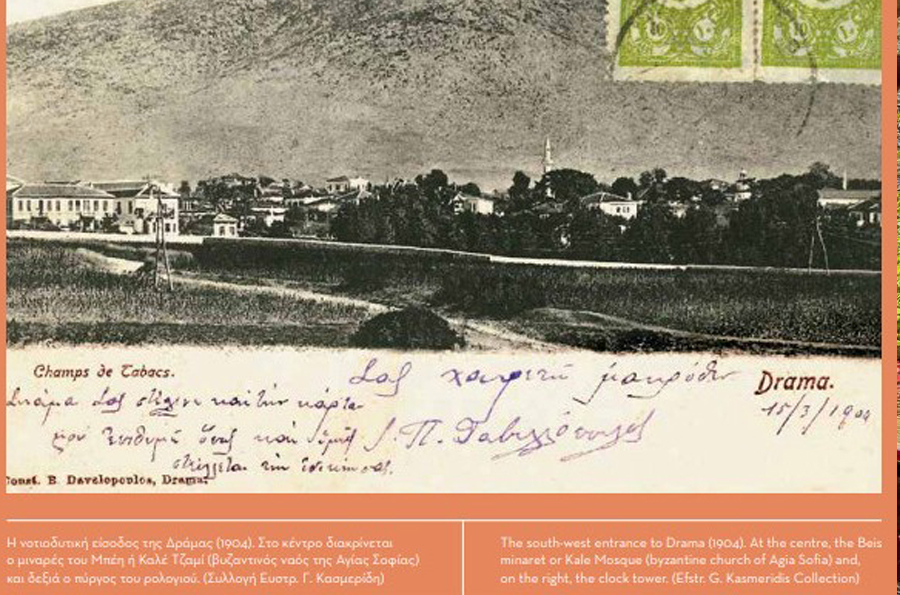 Champs de Tabacs.
Σας χαιρετῶ μακρόθεν
Drama.
15/3/1904
Σας στέλνω και την κάρτα
μου
στέλλεται
Const. B. Davelopoulos, Drama.
Η νοτιοδυτική είσοδος της Δράμας (1904). Στο κέντρο διακρίνεται
ο μιναρές του Μπέη ή Καλέ Τζαμί (βυζαντινός ναός της Αγίας Σοφίας)
και δεξιά ο πύργος του ρολογιού. (Συλλογή Ευστρ. Γ. Κασμερίδη)
The south-west entrance to Drama (1904). At the centre, the Beis
minaret or Kale Mosque (byzantine church of Agia Sofia) and,
on the right, the clock tower. (Efstr. G. Kasmeridis Collection)